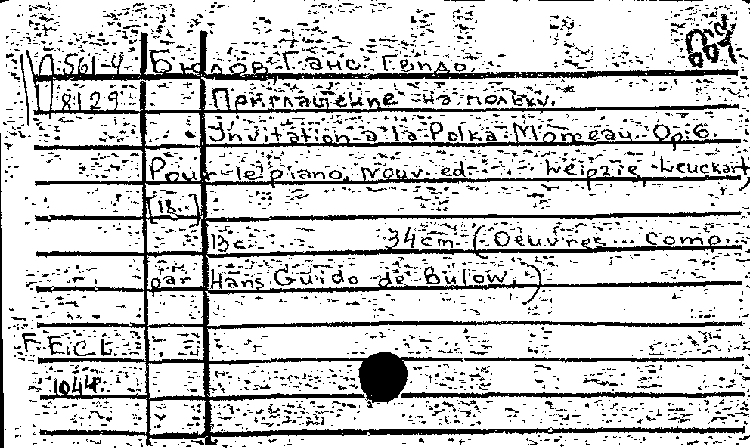 П 561-4 Бюлов, Ганс Гвидо.
8129 Приглашение на польку.
Invitation a la Polka. Morceau. Op. 6.
Pour le piano. Nouv. ed. ... Leipzig, Leuckart,
[18..]
13 c. 34 cm. (Oeuvres ... comp.
par Hans Guido de Bülow.)
1044